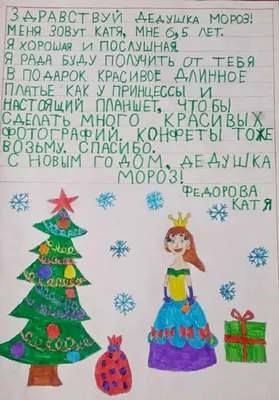 ЗДРАВСТВУЙ ДЕДУШКА МОРОЗ!
МЕНЯ ЗОВУТ КАТЯ, МНЕ 6,5 ЛЕТ.
Я ХОРОШАЯ И ПОСЛУШНАЯ.
Я РАДА БУДУ ПОЛУЧИТЬ ОТ ТЕБЯ
В ПОДАРОК КРАСИВОЕ ДЛИННОЕ
ПЛАТЬЕ КАК У ПРИНЦЕССЫ И
НАСТОЯЩИЙ ПЛАНШЕТ, ЧТОБЫ
СДЕЛАТЬ МНОГО КРАСИВЫХ
ФОТОГРАФИЙ. КОНФЕТЫ ТОЖЕ
ВОЗЬМУ. СПАСИБО.
С НОВЫМ ГОДОМ, ДЕДУШКА
МОРОЗ!
ФЕДОРОВА
КАТЯ